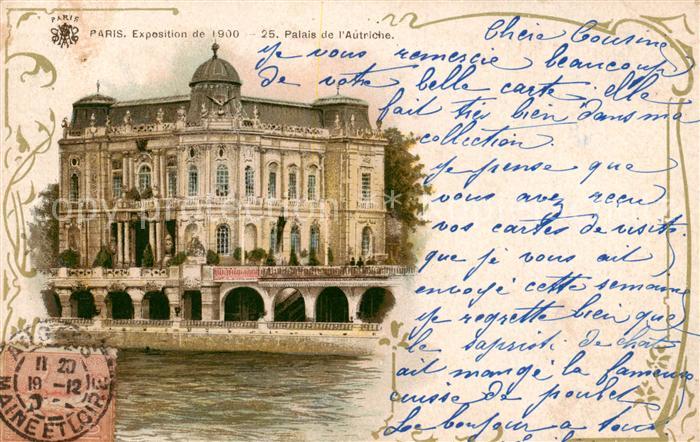 PARIS
PARIS. Exposition de 1900 – 25. Palais de l'Autriche.
Chère Cousine
je vous remercie beaucoup
de votre belle carte, elle
fait très bien dans ma
collection.
je pense que
vous avez reçu
vos cartes de visite
que je vous ait
envoyé cette semaine
je regrette bien que
le sapristi de chat
ait mangé la fameuse
cuisse de poulet
Le bonjour a tous
11 20
19 -12
MAINE ET LOIRE
copyright